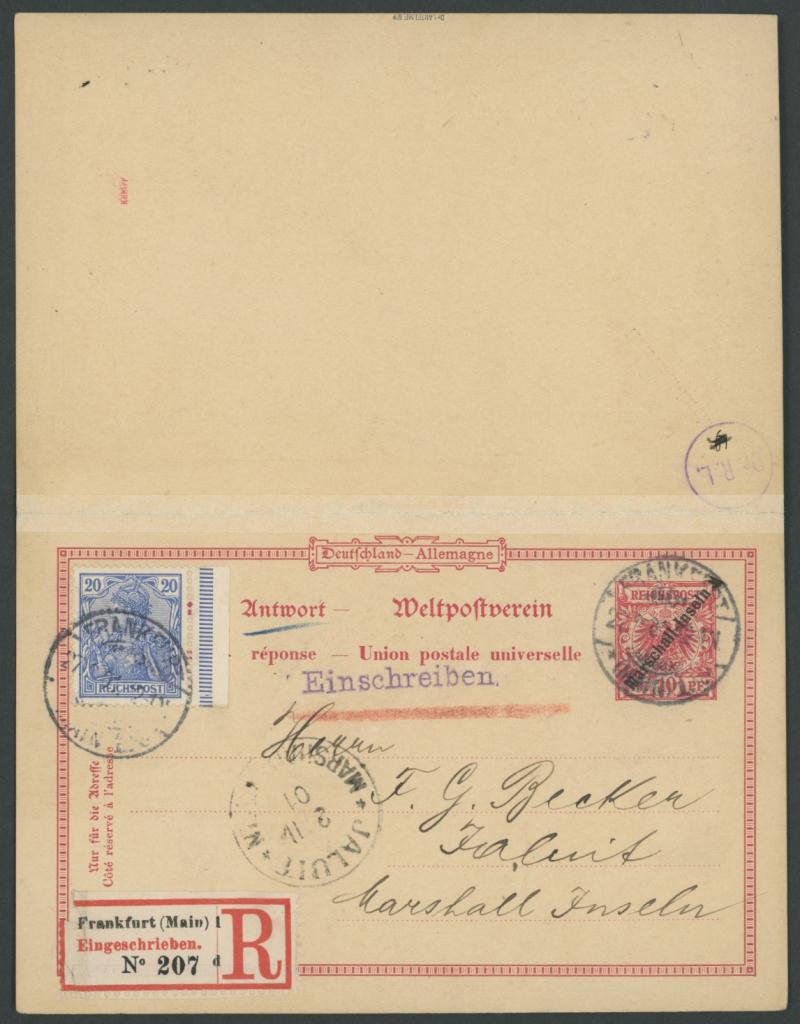 Dr. LANTELME BPP
Dr. R. L.
Deutschland—Allemagne
20 20
REICHSPOST
Antwort — Weltpostverein
réponse — Union postale universelle
REICHSPOST
Marschall-Inseln
10 PF
FRANKFURT
FRANKFURT
Einschreiben.
Herrn
F. G. Becker
Jaluit
Marshall Inseln
JALUIT
3 11 01
Nur für die Adresse
Côté réservé à l'adresse
Frankfurt (Main) 1
Eingeschrieben.
Nº 207 d
R